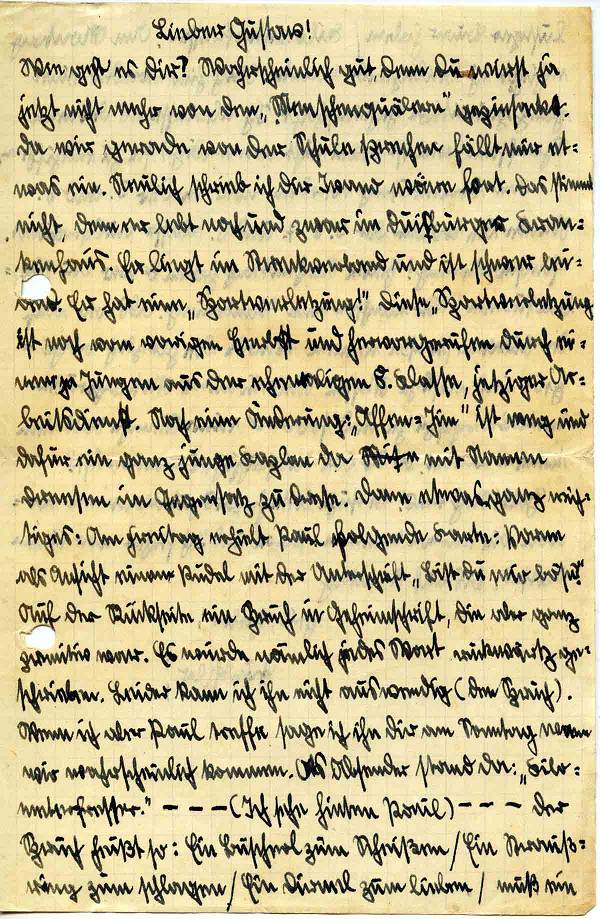 Lieber Gustav!
Wie geht es Dir? Wahrscheinlich gut, denn Du wirst ja
jetzt nicht mehr von den „Menschenquälern" gepiesackt.
Da wir gerade von der Schule sprechen fällt mir et=
was ein. Neulich schrieb ich Dir Iwand wäre fort. Das stimmt
nicht, denn er lebt noch und zwar im Duisburger Kran=
kenhaus. Er liegt im Streckverband und ist schwer lei=
dend. Er hat eine „Sportverletzung!" Diese „Sportverletzung
ist noch vom vorigen Herbst und hervorgerufen durch ei=
nen Jungen aus der ehemaligen 8. Klasse, jetziger Ar=
beitsdienst. Noch eine Änderung: „Affen=Jim" ist weg und
dafür ein ganz junge Kaplan da mit Namen
im Gegensatz zu Dann etwas ganz wich=
tiges: Am Freitag erhielt Paul folgende Karte: Vorne
als Ansicht einen Pudel mit der Unterschrift „Bist Du mir böse?"
Auf der Rückseite ein Spruch in Geheimschrift, die aber ganz
primitiv war. Es wurde nämlich jedes Wort rückwärtz ge=
schrieben. Leider kann ich ihn nicht auswendig (den Spruch).
Wenn ich aber Paul treffe sage ich ihn Dir am Sonntag wenn
wir wahrscheinlich kommen. Als Absender stand da: „Kilo=
meterfresser." – – – (Ich sehe hinten Paul) – – – Der
Spruch heißt so: Ein Büscherl zum Schießen / Ein Strauß=
ring zum schlagen / Ein Dirndl zum lieben / muß ein